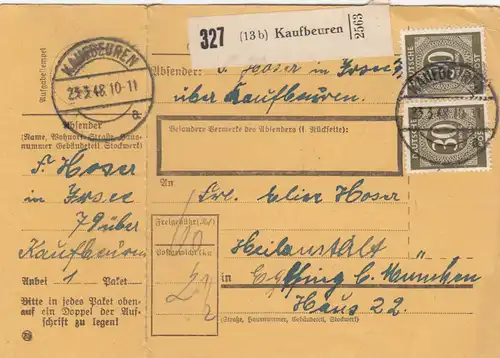 327 (13b) Kaufbeuren 2563
Aufgabestempel
KAUFBEUREN
23.3.48.10-11
a
Absender
(Name, Wohnort, Straße, Haus-
nummer Gebäudeteil, Stockwerk)
S. Hoser
in Irsee
79 über
Kaufbeuren
Anbei 1 Paket
Bitte in jedes Paket oben-
auf ein Doppel der Auf-
schrift zu legen!
Absender: S. Hoser in Irsee
über Kaufbeuren.
Besondere Vermerke des Absenders (s. Rückseite):
An Frl. Elise Hoser
Freigebühr
60
Heilanstalt
in Eglfing b. München
Haus 22
(Straße, Hausnummer, Gebäudeteil, Stockwerk)
DEUTSCHE POST
30
KAUFBEUREN